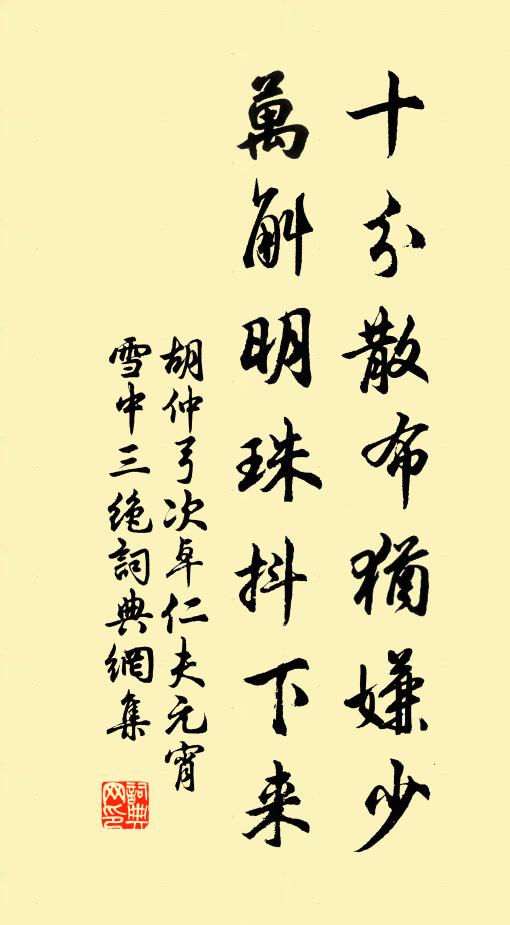 十分散布猶嫌少
萬斛明珠抖下来
胡仲弓次卓仁夫元宵
雪中三絶詞典網集
詞典
网印